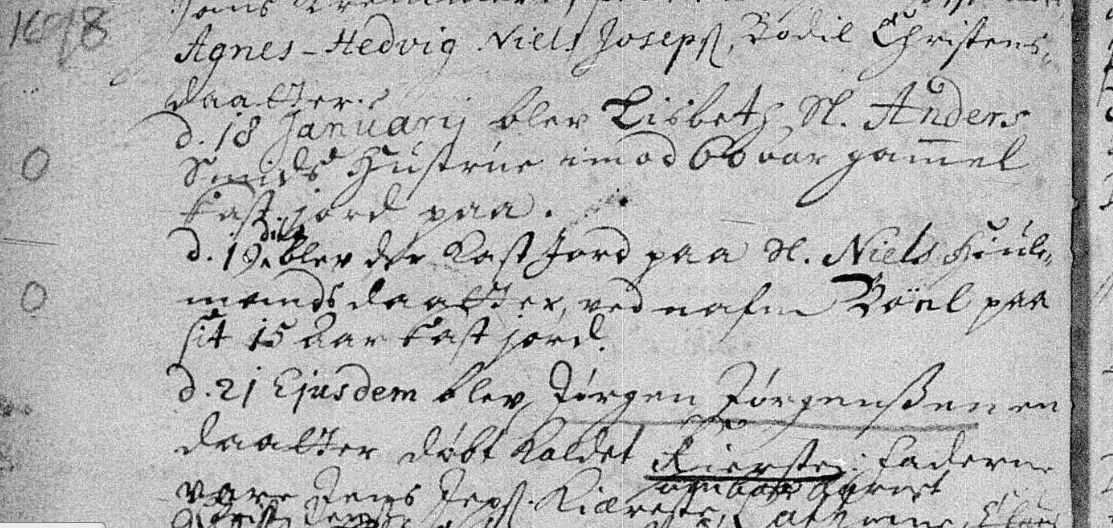 1698
Agnes-Hedvig Niels Joseps, Bodil Christens
daatter
d. 18 Januarij blev Lisbeth Sl. Anders
Smids Hustrue imod 60 aar gammel
kast jord paa.
d. 19 blev der Kast Jord paa Sl. Niels Hiül-
mands daatter, ved nafn Böel paa
sit 15 Aar kast jord.
d. 21 Ejusdem blev Jørgen Jørgenßen en
daatter døbt kaldet Kiersten: Faderne
vare Jens Jeps. Kiæreste,